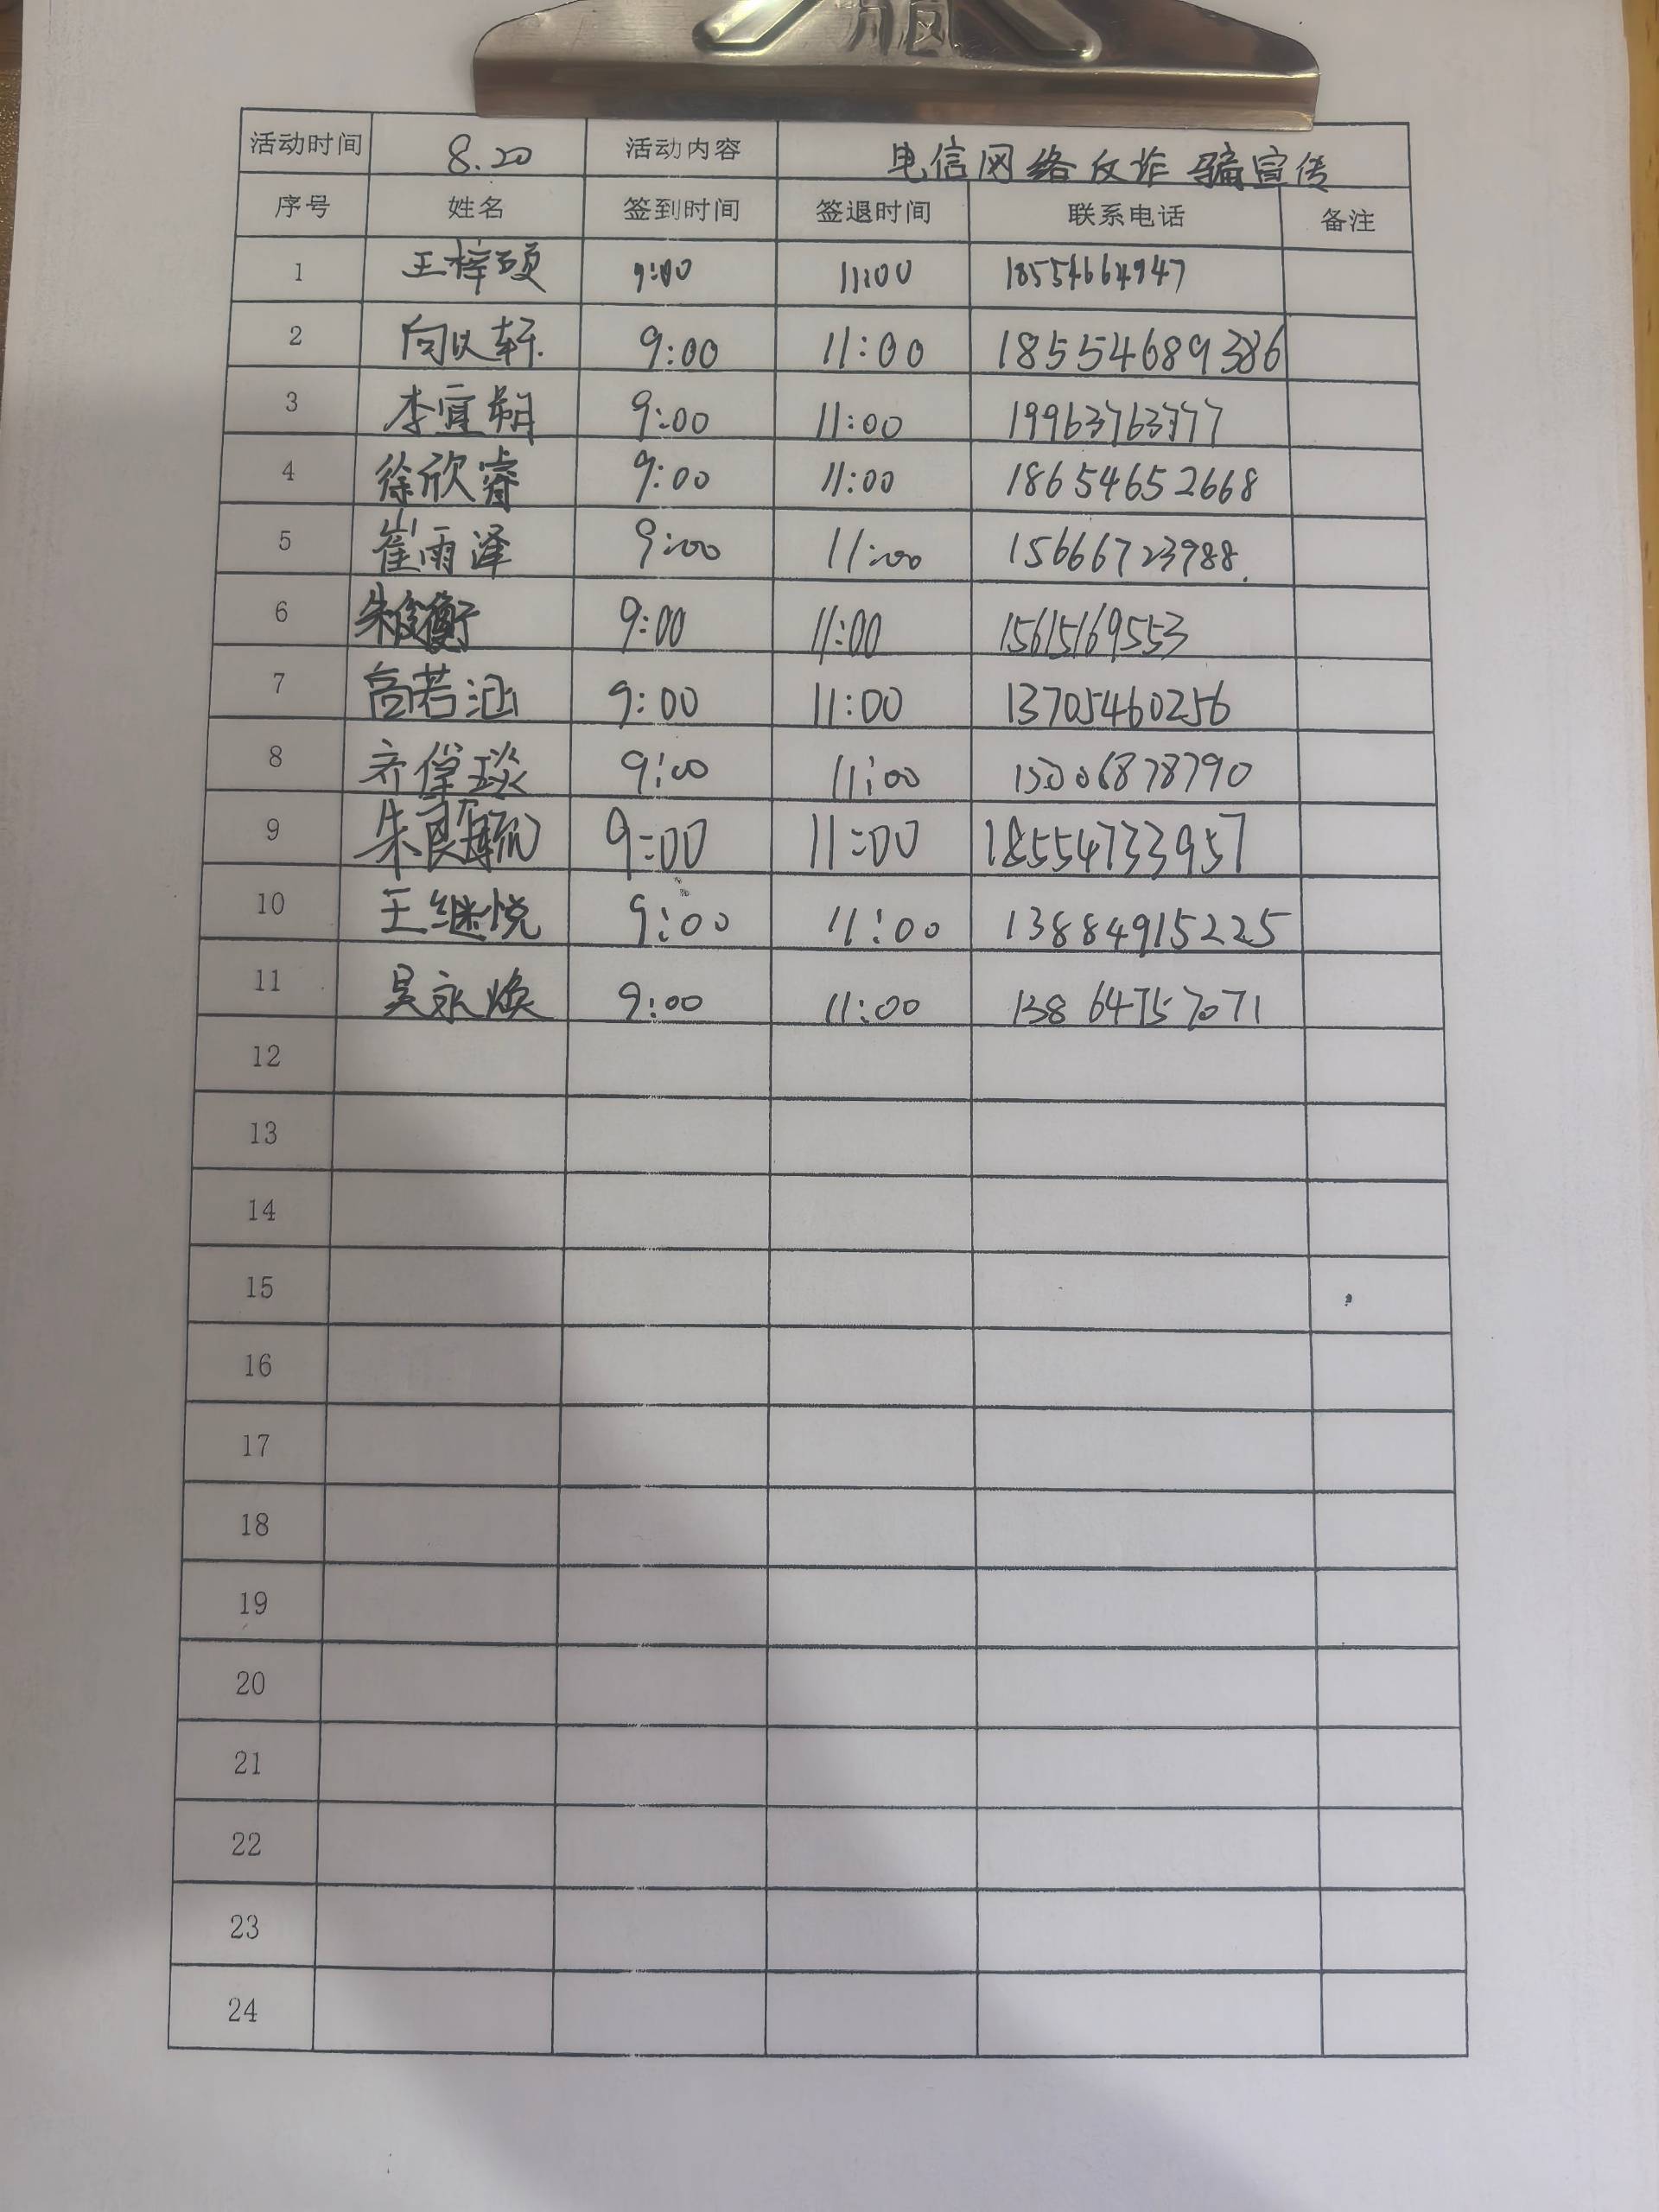 活动时间 8.20 活动内容 电信网络反诈骗宣传
序号 姓名 签到时间 签退时间 联系电话 备注
1 王梓硕 9:00 11:00 18554664947
2 向以轩 9:00 11:00 18554689386
3 李宜朔 9:00 11:00 19963763777
4 徐欣睿 9:00 11:00 18654652668
5 崔雨泽 9:00 11:00 15666723988.
6 朱俊衡 9:00 11:00 15615169553
7 高若涵 9:00 11:00 13705460256
8 齐 琰 9:00 11:00 15006878790
9 朱 9:00 11:00 18554733957
10 王继悦 9:00 11:00 13884915225
11 吴永焕 9:00 11:00 13864757071
12
13
14
15
16
17
18
19
20
21
22
23
24